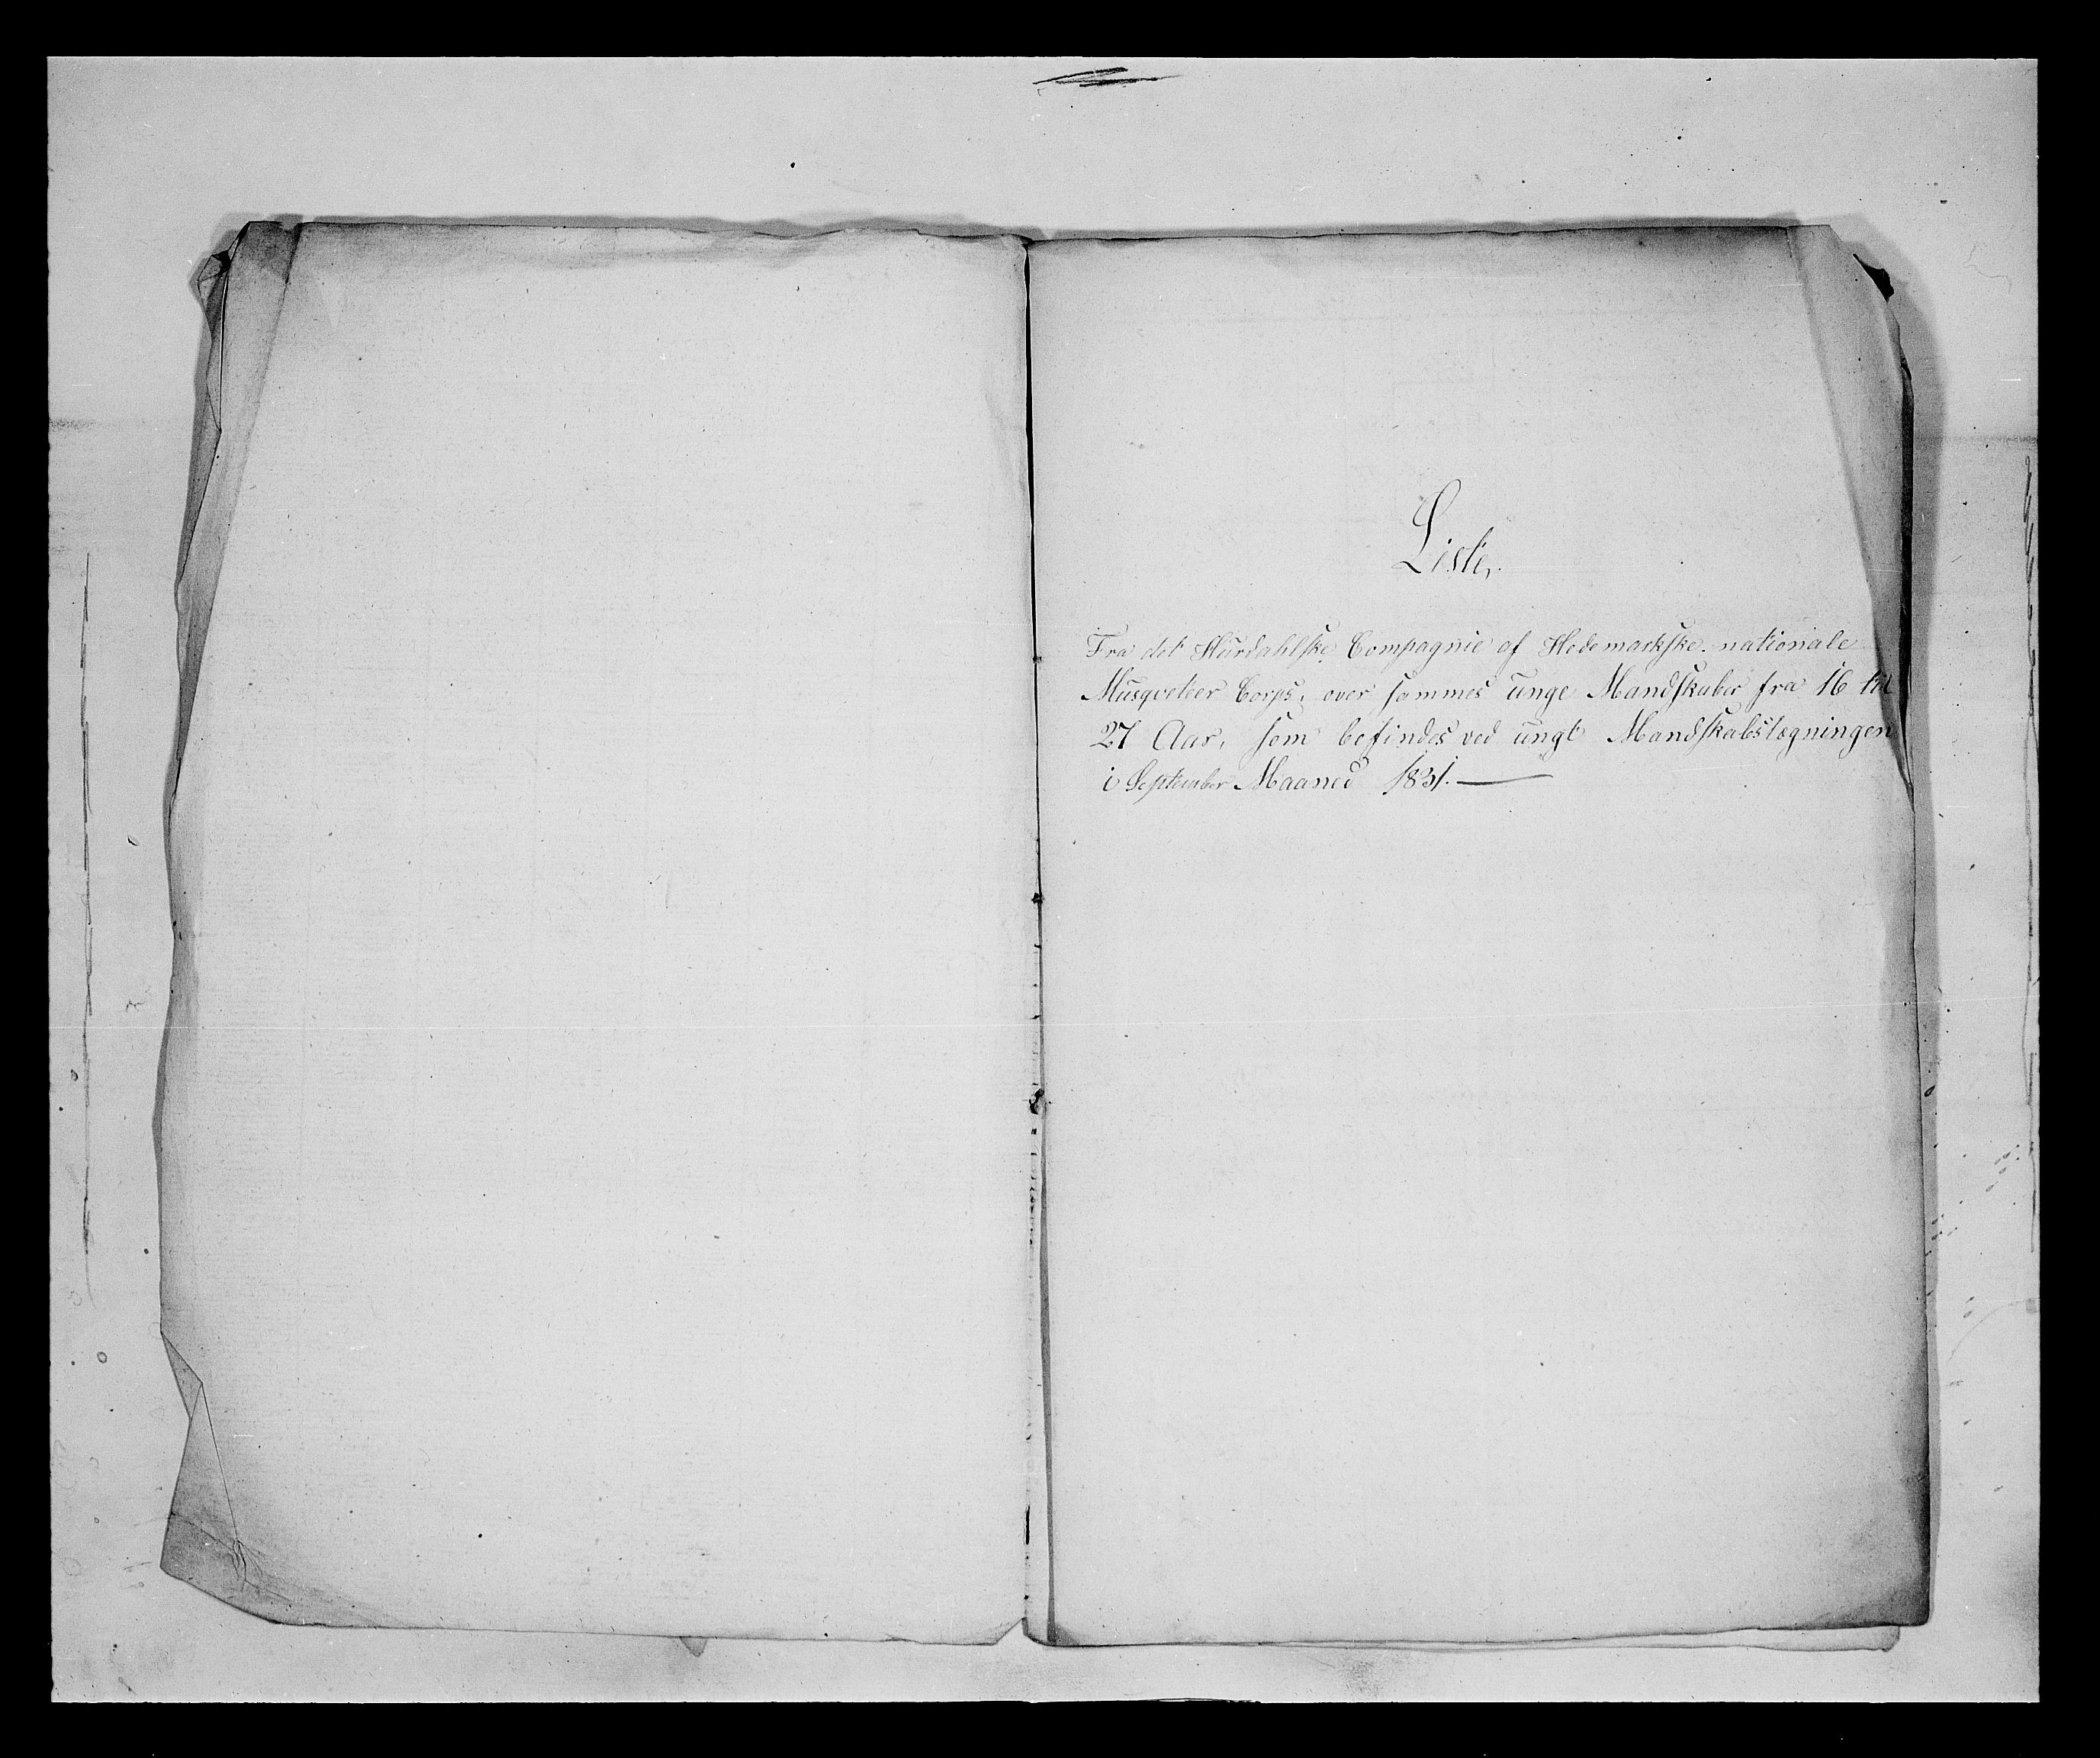 Liste,
Fra det Hurdahlske Compagnie af Hedemarkske nationale
Musqveteer Corps, over sammes unge Mandskaber fra 16 til
27 Aar, som befindes ved ungt Mandskabslægningen
i September Maaned 1831. —